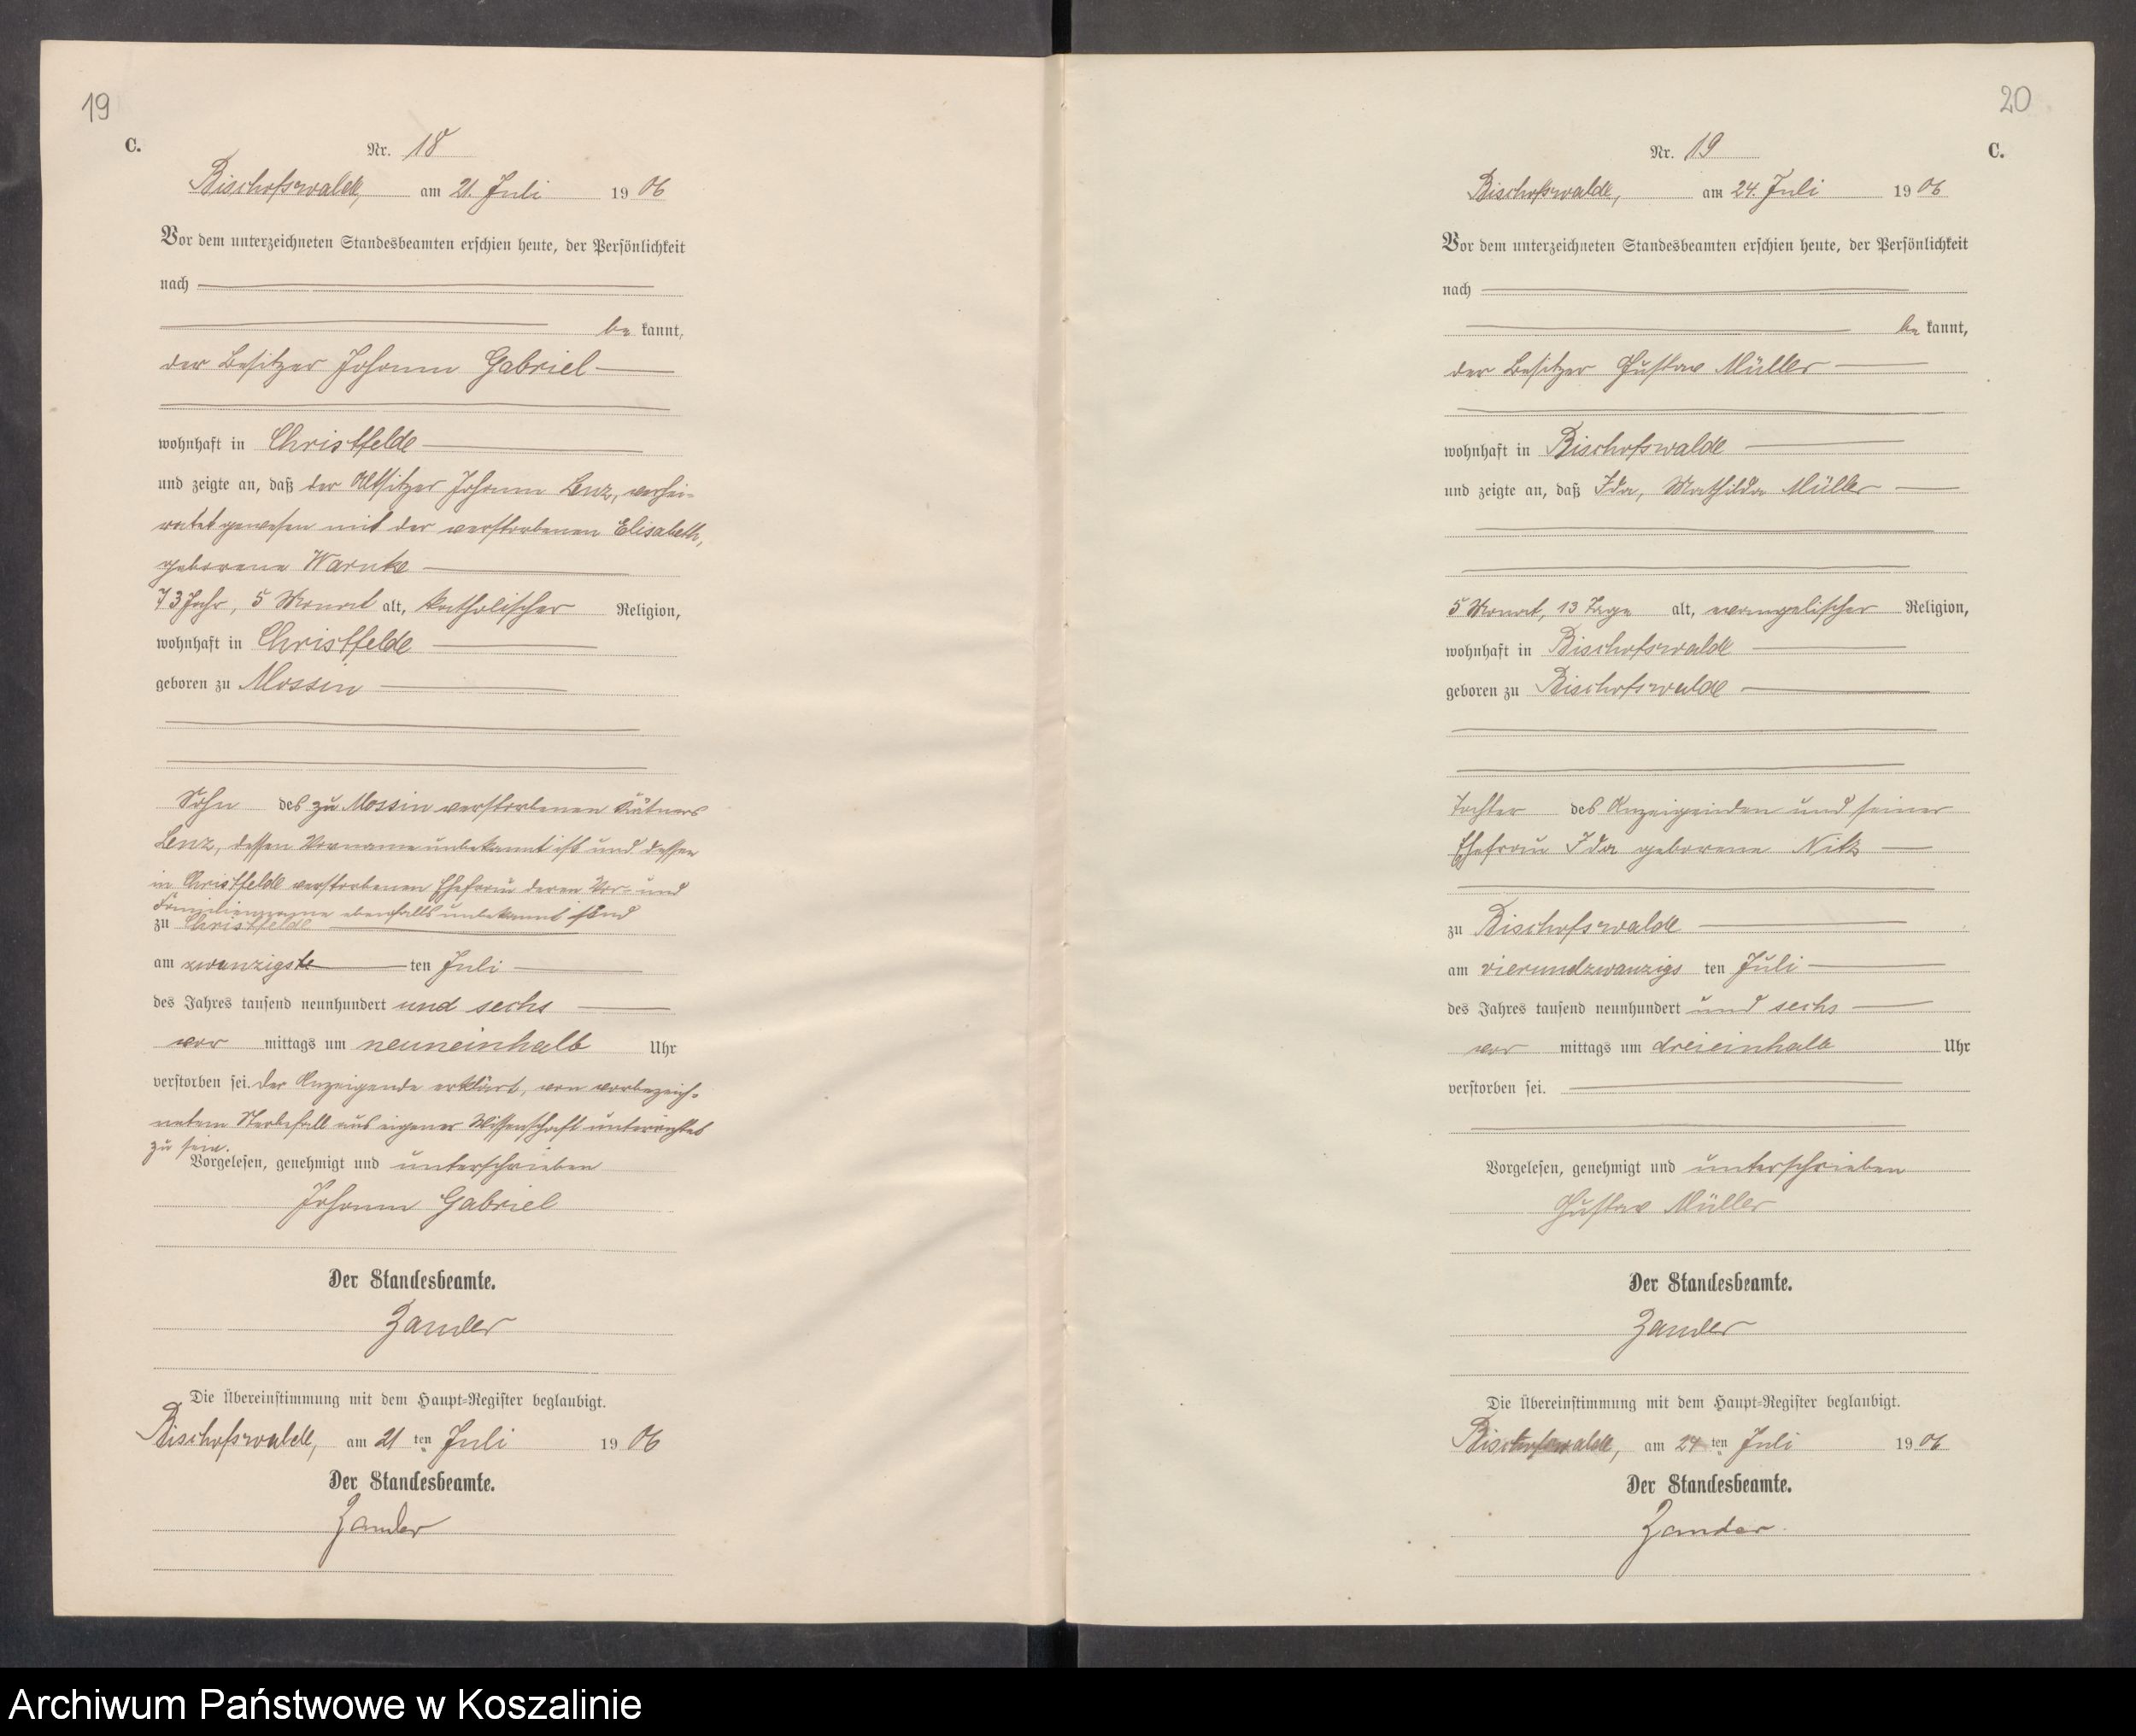 19
C.
Nr. 18
Bischofswalde, am 21. Juli 1906
Vor dem unterzeichneten Standesbeamten erschien heute, der Persönlichkeit
nach
be kannt,
der Besitzer Johann Gabriel
wohnhaft in Christfelde
und zeigte an, daß der Altsitzer Johann Lenz, verhei-
ratet gewesen mit der verstorbenen Elisabeth,
geborene Warnke
73 Jahr, 5 Monat alt, katholischer Religion,
wohnhaft in Christfelde
geboren zu Mossin
Sohn des zu Mossin verstorbenen Kätners
Lenz, dessen Vorname unbekannt ist und dessen
in Christfelde verstorbenen Ehefrau deren Vor- und
Familienname ebenfalls unbekannt sind
zu Christfelde
am zwanzigste ten Juli
des Jahres tausend neunhundert und sechs
vor mittags um neuneinhalb Uhr
verstorben sei. Der Anzeigende erklärt, von vorbezeich-
netem Sterbefall aus eigener Wissenschaft unterrichtet
zu sein.
Vorgelesen, genehmigt und unterschrieben
Johann Gabriel
Der Standesbeamte.
Zander
Die Übereinstimmung mit dem Haupt-Register beglaubigt.
Bischofswalde, am 21 ten Juli 1906
Der Standesbeamte.
Zander
20
C.
Nr. 19
Bischofswalde, am 24. Juli 1906
Vor dem unterzeichneten Standesbeamten erschien heute, der Persönlichkeit
nach
be kannt,
der Besitzer Gustav Müller
wohnhaft in Bischofswalde
und zeigte an, daß Ida, Mathilda Müller
5 Monat, 13 Tage alt, evangelischer Religion,
wohnhaft in Bischofswalde
geboren zu Bischofswalde
Tochter des Anzeigenden und seiner
Ehefrau Ida geborene Nitz
zu Bischofswalde
am vierundzwanzigs ten Juli
des Jahres tausend neunhundert und sechs
vor mittags um dreieinhalb Uhr
verstorben sei.
Vorgelesen, genehmigt und unterschrieben
Gustav Müller
Der Standesbeamte.
Zander
Die Übereinstimmung mit dem Haupt-Register beglaubigt.
Bischofswalde, am 24 ten Juli 1906
Der Standesbeamte.
Zander
Archiwum Państwowe w Koszalinie